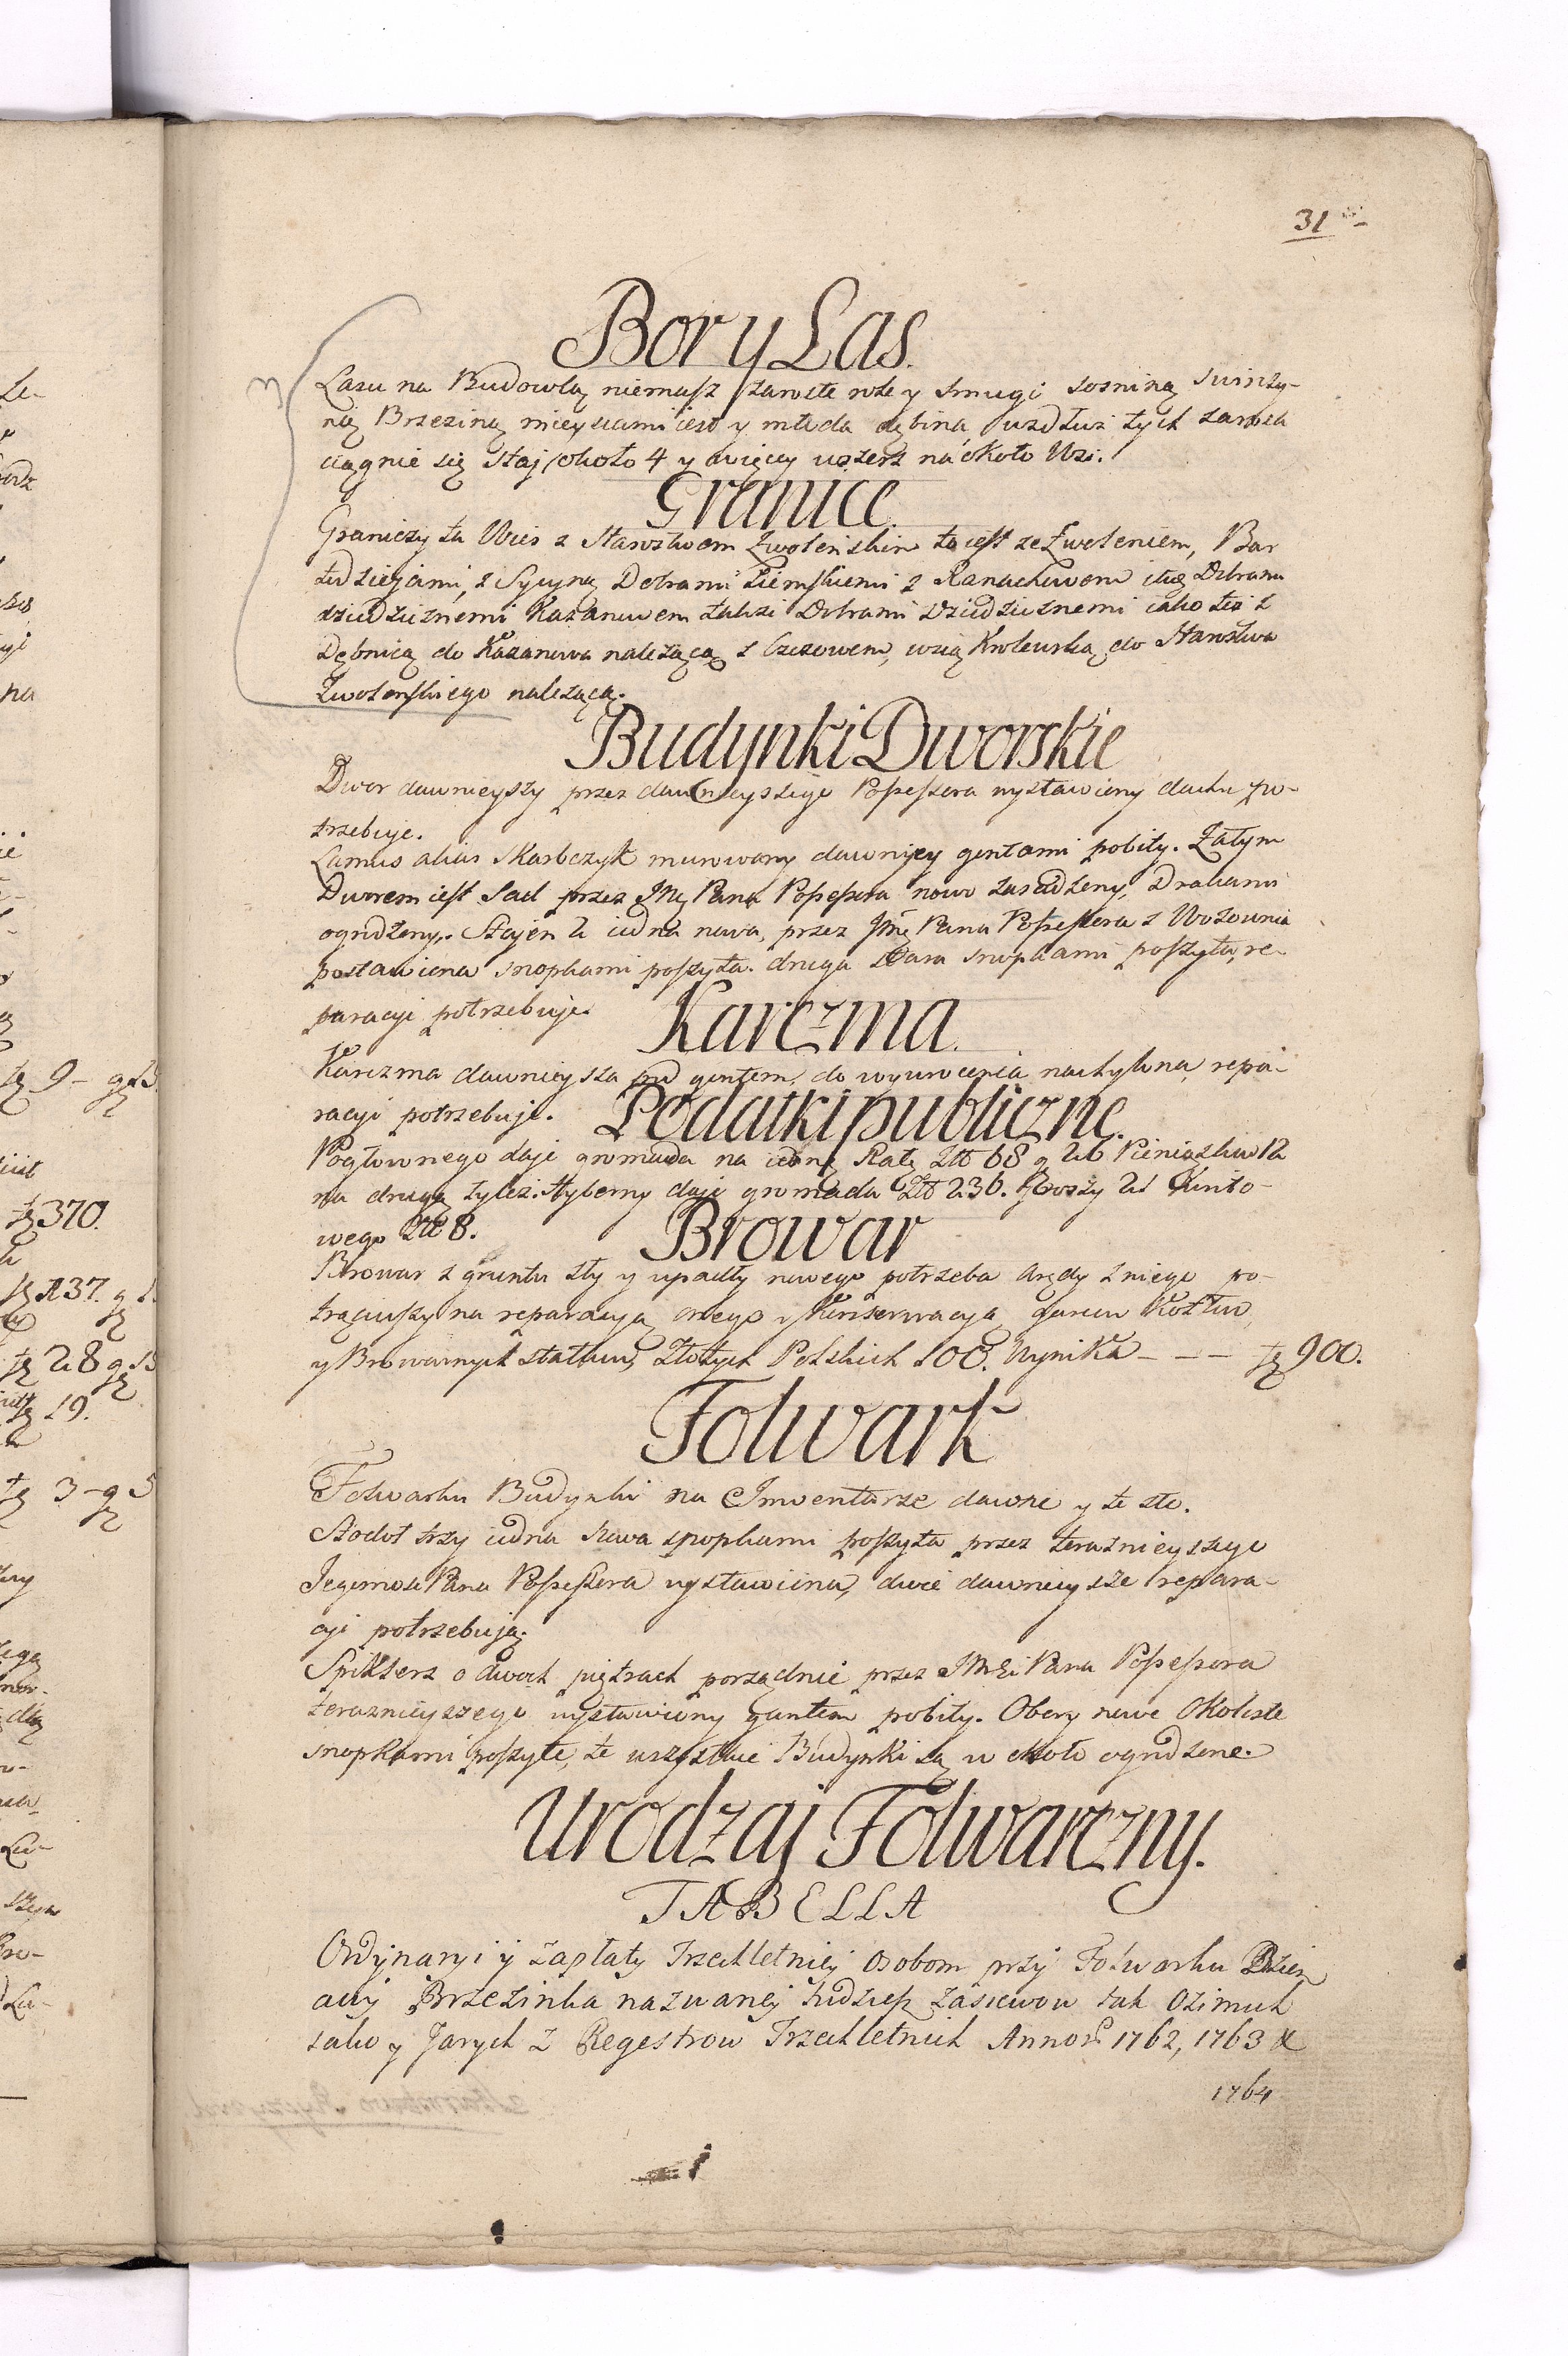 31
Bor y Las.
Lasu na Budowlą niemasz zarosłe role y smugi sosniną świrzy-
ną Brzeziną mieyscami iest y młoda dębina, wzdłuż tych zarosla
ciągnie się Staj około 4 y więcy wszerz na około Wsi.
Granice.
Graniczy ta Wieś z Starostwem Zwolenskim to iest ze Zwoleniem, Bar
todzieiami, z Sycyną Dobrami Ziemskiemi z Ranachowem Dobrami
dziedzicznemi Kazanowem także Dobrami dziedzicznemi iako też z
Dębnicą do Kazanowa nalezącą z Czczowem, wsią Krolewską do Starostwa
Zwolenskiego nalezącą.
Budynki Dworskie
Dwor dawnieyszy przez dawnieyszego Possessora wystawiony dachu po-
trzebuje.
Lamus alias Skarbczyk murowany dawniey gontami pobity. Zatym
Dworem iest Sad przez JMę Pana Possessora nowo zasadzony, Drabami
ogrodzony. Stajen 2 iedna nowa, przez JMę Pana Possessora z Wozownią
postawiona snopkami poszyta. druga stara snopkami poszyta, re-
paracyi potrzebuje.
Karczma.
Karczma dawnieysza pod gontem, do wywrocenia nachylona, repa-
racyi potrzebuje.
Podatki publiczne.
Pogłownego daje gromada na iedną Ratę Złł 68 g 26 Pieniązkow 12
na drugą tyleż. Hyberny daje gromada Złł 236. Groszy 21 Kwito-
wego Złł 8.
Browar
Browar z gruntu zły y upadły nowego potrzeba Arędy z niego po-
trąciwszy na reparacyą onego y Konserwacyą garcu Kotłow,
y Browarnych statkow, Złotych Polskich 100. Wynika - - - fł 900.
Folwark
Folwarku Budynki na Inwentarze dawne y te złe.
Stodoł trzy iedna nowa snopkami poszyta przez teraznieyszego
Jegomosci Pana Possessora wystawiona, dwie dawnieysze repara-
cyi potrzebują.
Spiklerz o dwoch piętrach porządnie przez JMści Pana Possessora
teraznieyszego wystawiony gontem pobity. Obory nowe Okoliste
snopkami poszyte, te wszystkie Budynki są w około ogrodzone.
Urodzaj Folwarczny.
TABELLA
Ordynaryi y zapłaty Trzechletniey osobom przy Folwarku Dzierz
awy Brzezinka nazwaney tudziesz zasiewow tak Ozimych
iako y Jarych z Regestrow Trzechletnich Annor 1762, 1763 &
1764